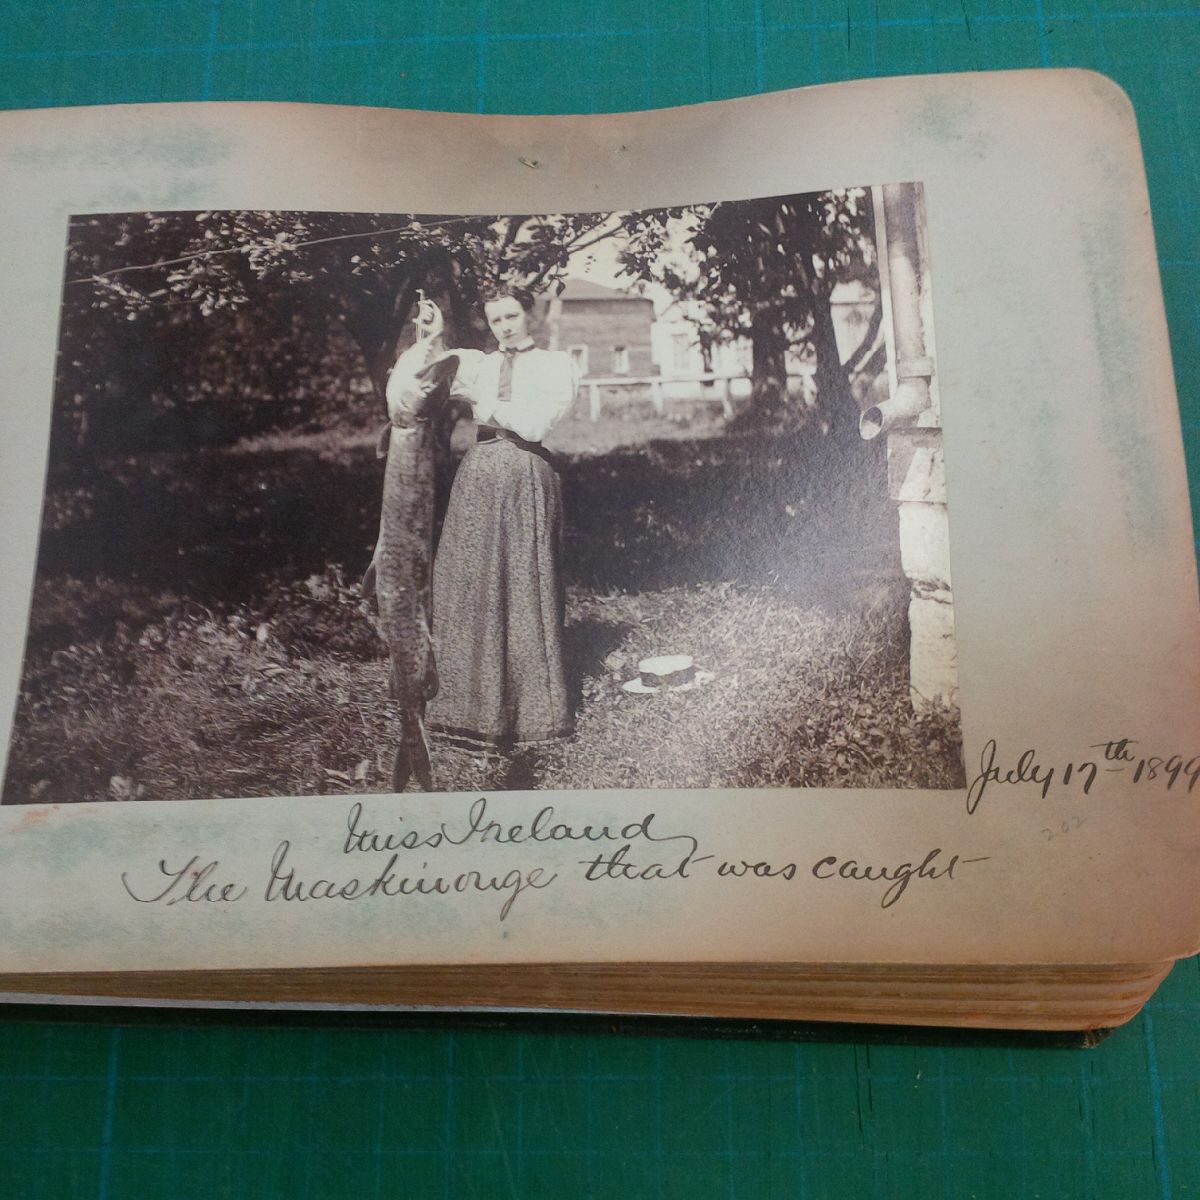 July 17th 1899
202
Miss Ireland
The Maskinonge that was caught